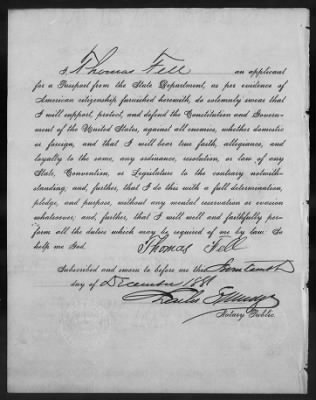 I, Thomas Fell an applicant
for a Passport from the State Department, as per evidence of
American citizenship furnished herewith, do solemnly swear that
I will support, protect, and defend the Constitution and Govern-
ment of the United States, against all enemies, whether domestic
or foreign, and that I will bear true faith, allegiance, and
loyalty to the same, any ordinance, resolution, or law of any
State, Convention, or Legislature to the contrary notwith-
standing; and, further, that I do this with a full determination,
pledge, and purpose, without any mental reservation or evasion
whatsoever; and, further, that I will well and faithfully per-
form all the duties which may be required of me by law: So
help me God.
Thomas Fell
Subscribed and sworn to before me this
day of December 1881
Notary Public.